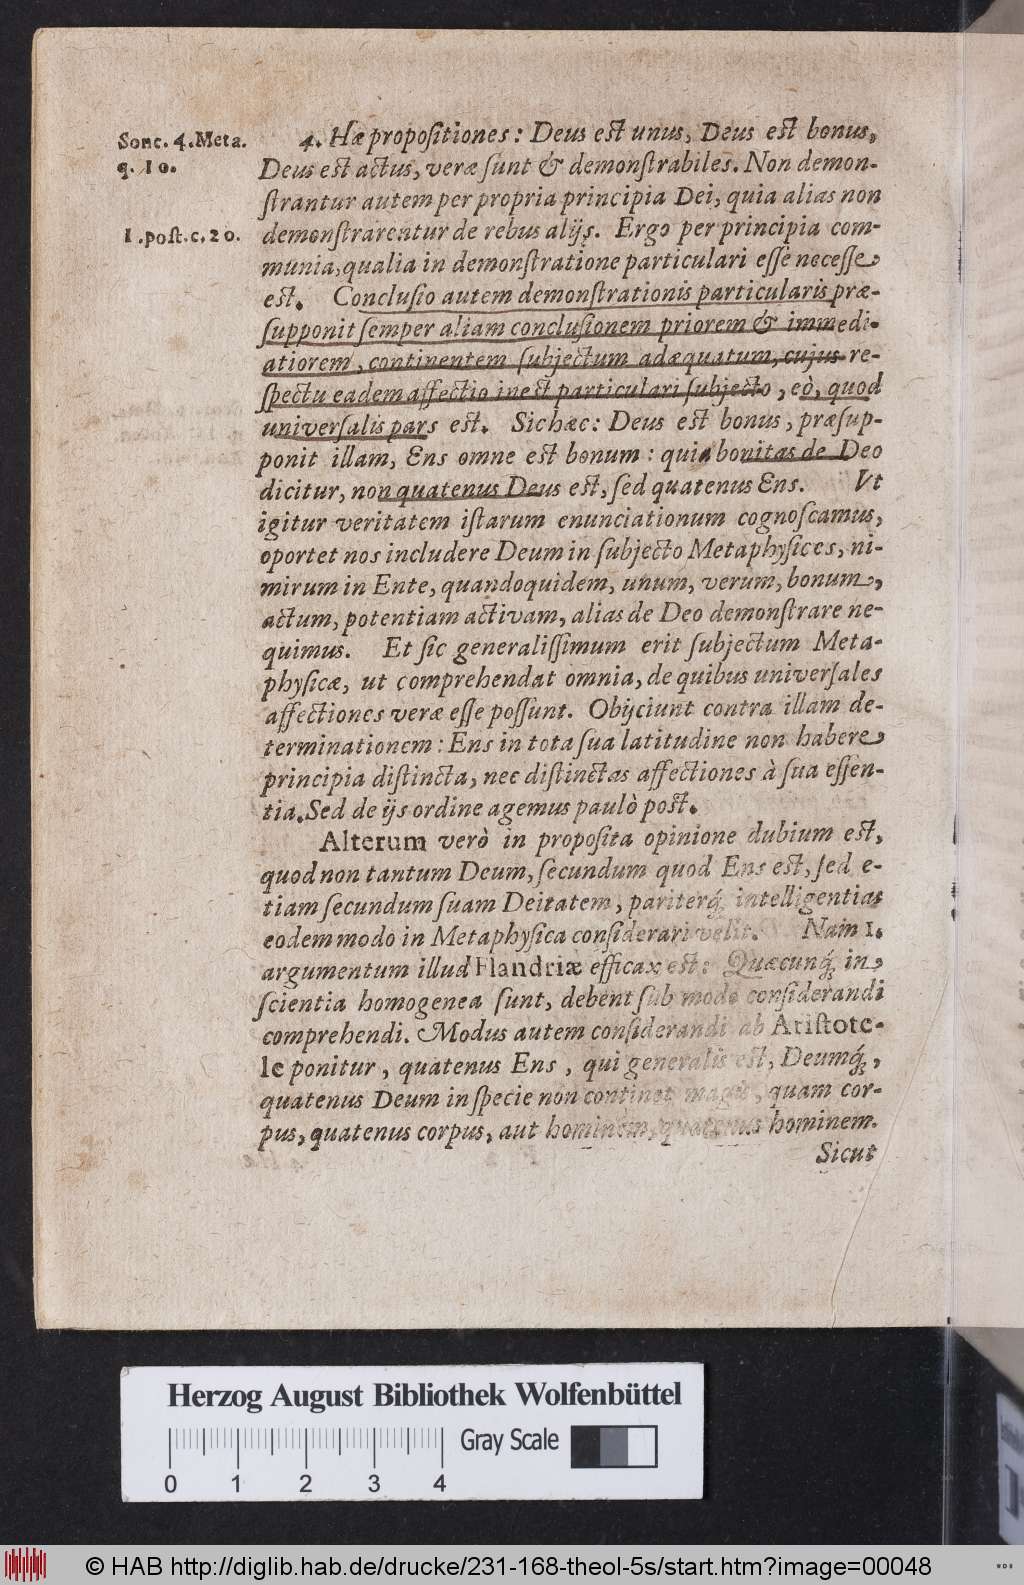 Sonc. 4. Meta.
q. 10.
1. post. c. 20.
4. Hæ propositiones: Deus est unus, Deus est bonus,
Deus est actus, veræ sunt & demonstrabiles. Non demon-
strantur autem per propria principia Dei, quia alias non
demonstrarentur de rebus alijs. Ergo per principia com-
munia, qualia in demonstratione particulari esse necesse
est. Conclusio autem demonstrationis particularis præ-
supponit semper aliam conclusionem priorem & immedi-
atiorem, continentem subjectum adæquatum, cujus re-
spectu eadem affectio inest particulari subjecto, eò, quod
universalis pars est. Sic hæc: Deus est bonus, præsup-
ponit illam, Ens omne est bonum: quia bonitas de Deo
dicitur, non quatenus Deus est, sed quatenus Ens. Vt
igitur veritatem istarum enunciationum cognoscamus,
oportet nos includere Deum in subjecto Metaphysices, ni-
mirum in Ente, quandoquidem, unum, verum, bonum,
actum, potentiam activam, alias de Deo demonstrare ne-
quimus. Et sic generalissimum erit subjectum Meta-
physicæ, ut comprehendat omnia, de quibus universales
affectiones veræ esse possunt. Obijciunt contra illam de-
terminationem: Ens in tota sua latitudine non habere
principia distincta, nec distinctas affectiones à sua essen-
tia. Sed de ijs ordine agemus paulò post.
Alterum verò in proposita opinione dubium est,
quod non tantum Deum, secundum quod Ens est, sed e-
tiam secundum suam Deitatem, pariterq́; intelligentias
eodem modo in Metaphysica considerari velit. Nam 1.
argumentum illud Flandriæ efficax est: Quæcunq́; in
scientia homogenea sunt, debent sub modo considerandi
comprehendi. Modus autem considerandi ab Aristote-
le ponitur, quatenus Ens, qui generalis est, Deumq́;,
quatenus Deum in specie non continet magis, quam cor-
pus, quatenus corpus, aut hominem, quatenus hominem.
Sicut
Herzog August Bibliothek Wolfenbüttel
Gray Scale
0 1 2 3 4
© HAB http://diglib.hab.de/drucke/231-168-theol-5s/start.htm?image=00048